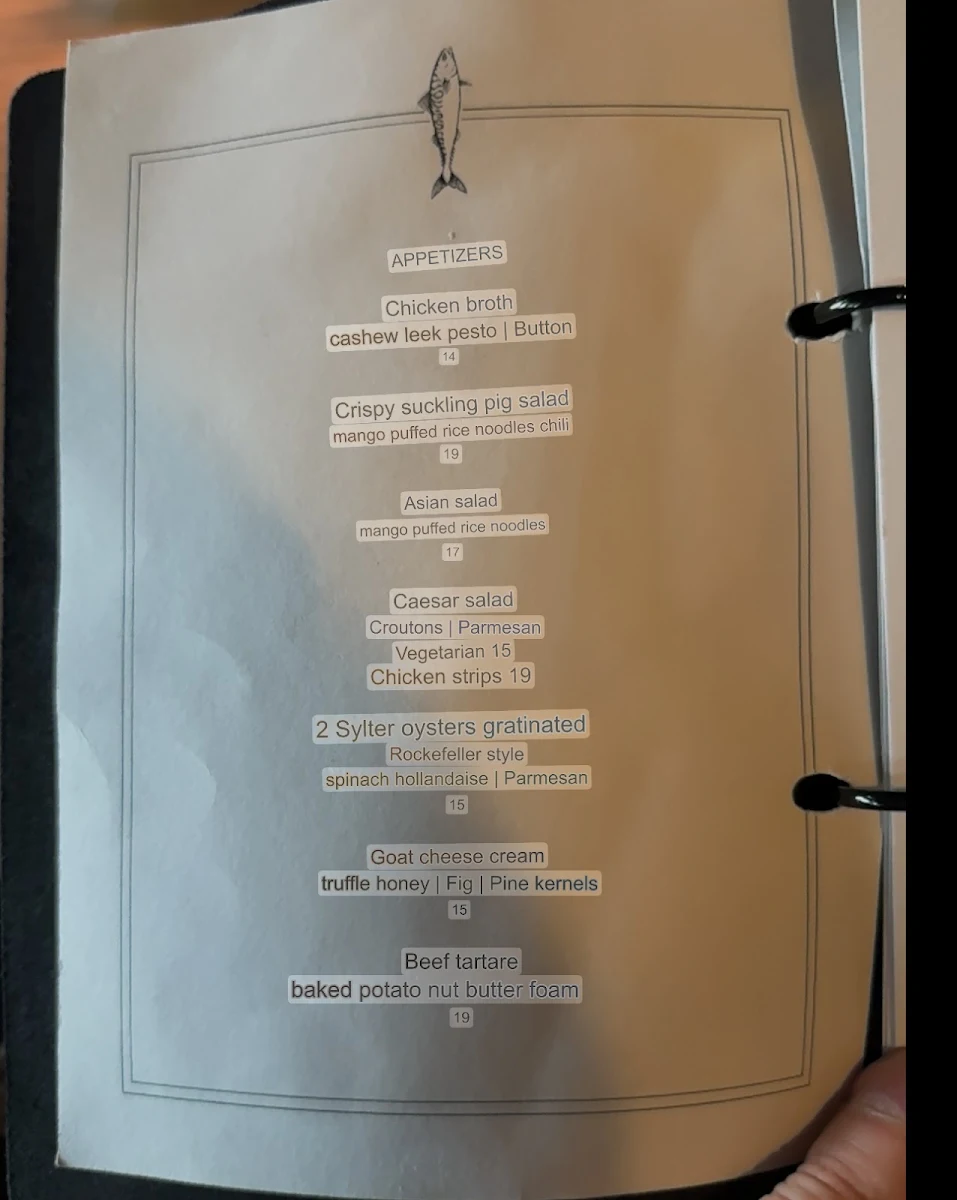 APPETIZERS
Chicken broth
cashew leek pesto | Button
14
Crispy suckling pig salad
mango puffed rice noodles chili
19
Asian salad
mango puffed rice noodles
17
Caesar salad
Croutons | Parmesan
Vegetarian 15
Chicken strips 19
2 Sylter oysters gratinated
Rockefeller style
spinach hollandaise | Parmesan
15
Goat cheese cream
truffle honey | Fig | Pine kernels
15
Beef tartare
baked potato nut butter foam
19